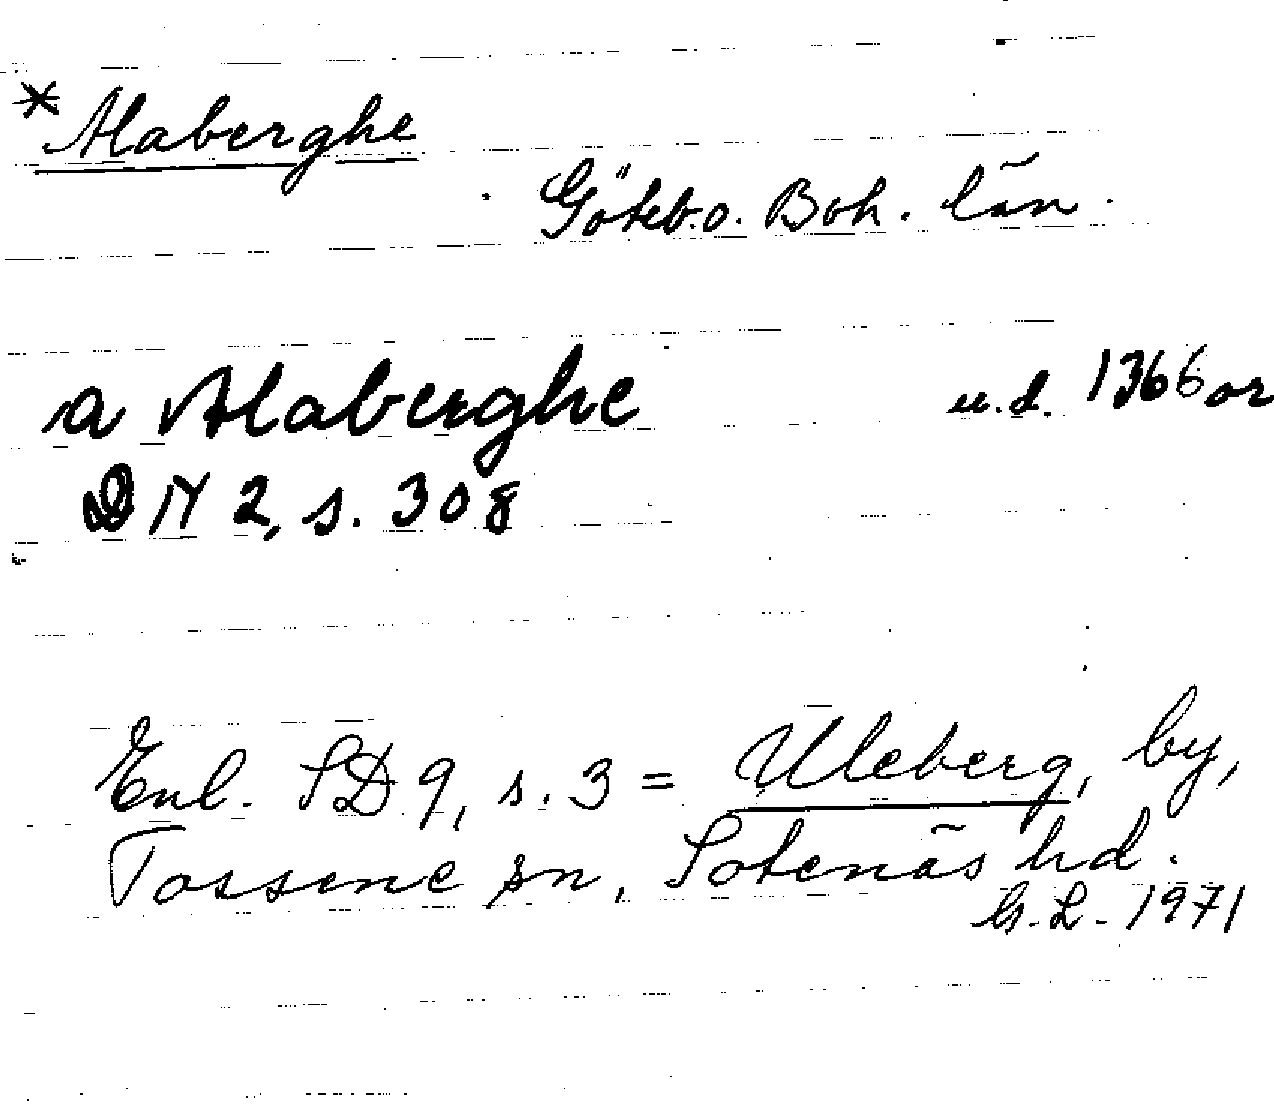 *Alaberghe
Göteb. o. Boh. län.
a Alaberghe u.d. 1366 or
DN 2, s. 308
Enl. SD 9, s. 3 = Uleberg, by,
Tossene sn, Sotenäs hd.
G.L. 1971